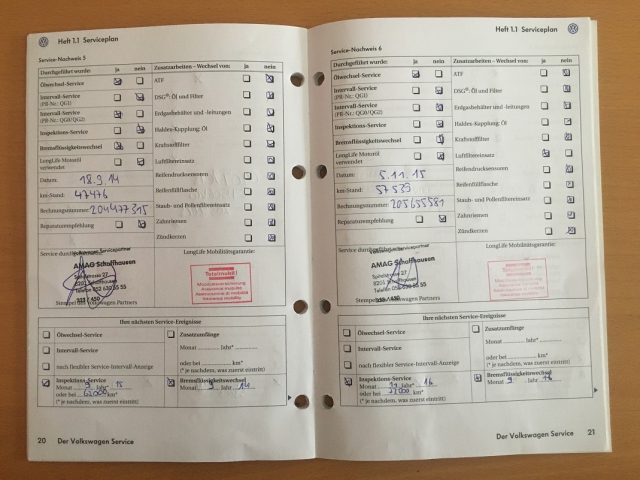 Heft 1.1 Serviceplan
Service-Nachweis 5
Durchgeführt wurde: ja nein
Zusatzarbeiten – Wechsel von: ja nein
Ölwechsel-Service
Intervall-Service
(PR-Nr.: QG1)
Intervall-Service
(PR-Nr.: QG0/QG2)
Inspektions-Service
Bremsflüssigkeitswechsel
LongLife Motoröl
verwendet
Datum: 18.9.14
km-Stand: 47476
Rechnungsnummer: 204477315
Reparaturempfehlung
ATF
DSG®: Öl und Filter
Erdgasbehälter und -leitungen
Haldex-Kupplung: Öl
Kraftstofffilter
Luftfiltereinsatz
Reifendrucksensoren
Reifenfüllflasche
Staub- und Pollenfiltereinsatz
Zahnriemen
Zündkerzen
Service durch
Volkswagen Servicepartner
AMAG Schaffhausen
8201 Schaffhausen
Stempel des Volkswagen Partners
LongLife Mobilitätsgarantie:
Totalmobil!
Ihre nächsten Service-Ereignisse
Ölwechsel-Service
Intervall-Service
nach flexibler Service-Intervall-Anzeige
Zusatzumfänge
Monat Jahr*
oder bei km*
(* je nachdem, was zuerst eintritt)
Inspektions-Service
Monat Jahr 15
oder bei km*
(* je nachdem, was zuerst eintritt)
Bremsflüssigkeitswechsel
Monat 9 Jahr 14
20 Der Volkswagen Service
Heft 1.1 Serviceplan
Service-Nachweis 6
Durchgeführt wurde: ja nein
Zusatzarbeiten – Wechsel von: ja nein
Ölwechsel-Service
Intervall-Service
(PR-Nr.: QG1)
Intervall-Service
(PR-Nr.: QG0/QG2)
Inspektions-Service
Bremsflüssigkeitswechsel
LongLife Motoröl
verwendet
Datum: 5.11.15
km-Stand: 57539
Rechnungsnummer: 205655581
Reparaturempfehlung
ATF
DSG®: Öl und Filter
Erdgasbehälter und -leitungen
Haldex-Kupplung: Öl
Kraftstofffilter
Luftfiltereinsatz
Reifendrucksensoren
Reifenfüllflasche
Staub- und Pollenfiltereinsatz
Zahnriemen
Zündkerzen
Service durch
AMAG Schaffhausen
8201 Schaffhausen
Stempel des Volkswagen Partners
LongLife Mobilitätsgarantie:
Totalmobil!
Ihre nächsten Service-Ereignisse
Ölwechsel-Service
Intervall-Service
nach flexibler Service-Intervall-Anzeige
Zusatzumfänge
Monat Jahr*
oder bei km*
(* je nachdem, was zuerst eintritt)
Inspektions-Service
Monat Jahr 16
oder bei km*
(* je nachdem, was zuerst eintritt)
Bremsflüssigkeitswechsel
Monat 9 Jahr 16
Der Volkswagen Service 21